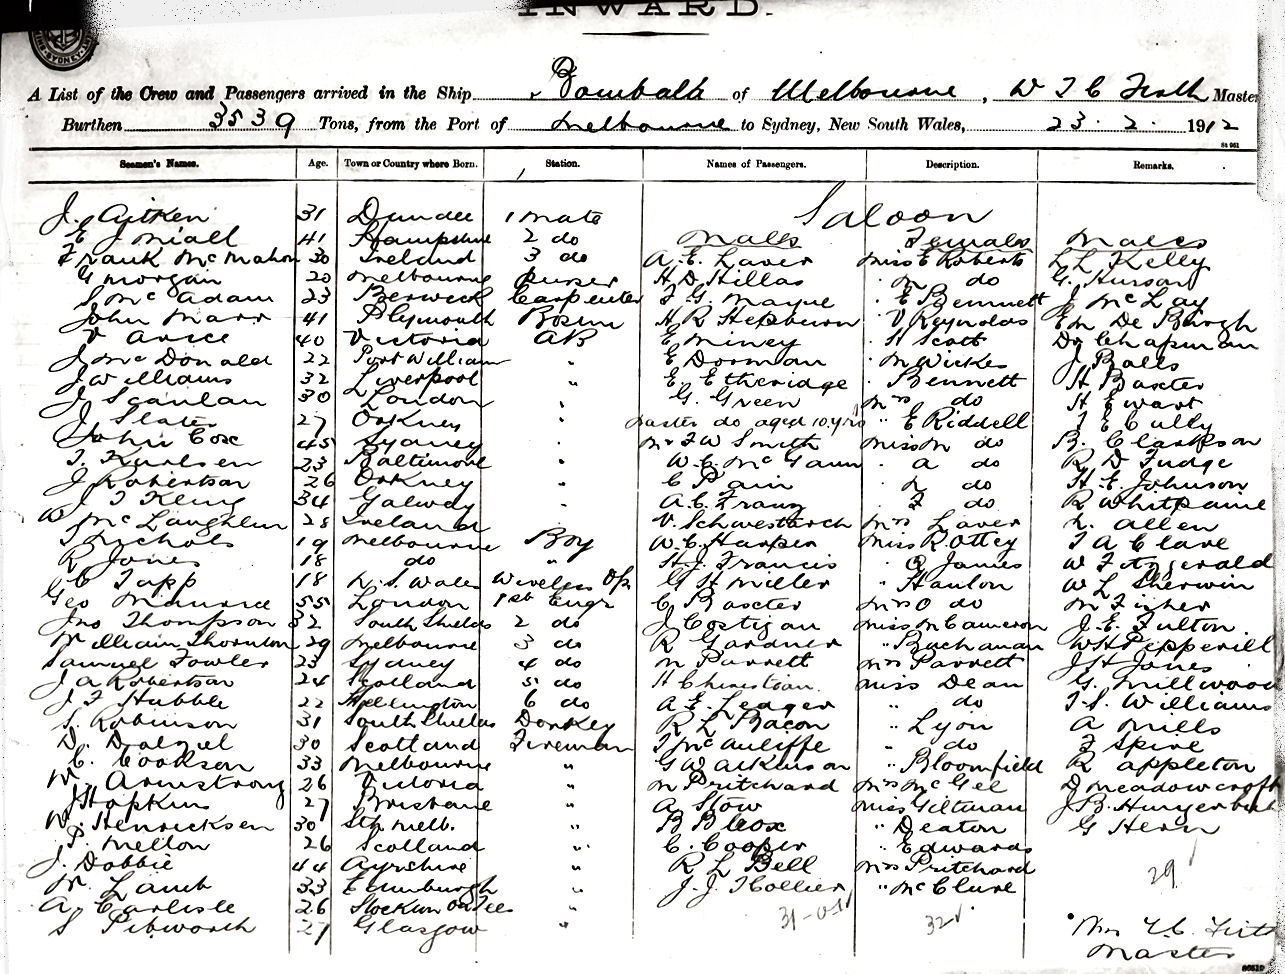 INWARD.
SYDNEY
A List of the Crew and Passengers arrived in the Ship Bombala of Melbourne, W T C Firth Master
Burthen 3539 Tons, from the Port of Melbourne to Sydney, New South Wales, 23.2. 1912
Seamen's Names. Age. Town or Country where Born. Station. Names of Passengers. Description. Remarks.
J. Aitken 31 Dundee 1 Mate Saloon
E J Niall 41 Hampshire 2 do Males Females Males
Frank McMahon 30 Ireland 3 do A. E. Laver Miss E Roberts L L Kelly
G Morgan 20 Melbourne Purser H D Hillas " M do G. Hurson
S McAdam 23 Berwick Carpenter F G. Mayne " E Bennett J McLay
John Marr 41 Plymouth Bosun H R Hepburn " V Reynolds Em De Burgh
V 40 Victoria AB E Miney " Scott Dr Chapman
J McDonald 22 Port William " E Dorman " M Wickes J Balls
J Williams 32 Liverpool " E Etheridge " Bennett H Baxter
J Scanlan 30 London " G. Green Mrs do H Ewart
J Slater 27 Orkney " Master do aged 10 yrs " E Riddell T E Cully
John Cox 45 Sydney " Mr F W Smith Miss M do B. Clarkson
T. Karlsen 23 Baltimore " W. C. McGann " A do R D Judge
J Robertson 26 Orkney " C Pain " do H. E. Johnson
J T King 34 Galway " A. C. Franz " F do R Whitpaine
W McLaughlin 28 Ireland " V. Mrs Laver L. Allen
T Nichols 19 Melbourne Boy W. C. Harper Miss Rottey T A Clare
R Jones 18 do " H. J. Francis " James W Fitzgerald
G C Tapp 18 N. S. Wales Wireless Op G H Miller " Hanlon W L Sherwin
Geo Maurice 55 London 1st Engr C Baxter Mrs O do M Fisher
Jno Thompson 32 South Shields 2 do J Costigan Miss M Cameron J. E. Fulton
William Thornton 29 Melbourne 3 do R Gardner " Buchanan W H Pipperill
Samuel Fowler 23 Sydney 4 do M Parrett Mrs Parrett J H Jones
J A Robertson 24 Scotland 5 do H Christian. Miss Dean G. Millwood
J. T Hubble 22 Wellington 6 do A. E. Leager " do T. S. Williams
S. Robinson 31 South Shields Donkey R L Bacon " Lyon A Mills
D. Dalziel 30 Scotland Fireman T McAuliffe " do F Spire
C. Cookson 33 Melbourne " G W Atkinson " Bloomfield R Appleton
W. Armstrong 26 Victoria " M Pritchard Mrs McGee D Meadowcroft
J Hopkins 27 Brisbane " A Stow Miss Giltinan J. B. Hungerford
W. Henricksen 30 Sth Melb. " B Blcox " Deaton G Hern
P. Mellon 26 Scotland " C. Cooper " Edwards
J. Dobbie 44 Ayrshire " R L Bell Mrs Pritchard
W. Lamb 33 Edinburgh " J. J. Hollier " McClure 29
A. Carlisle 26 Stockton on Tees " 31-0-1
S Pibworth 27 Glasgow " 32 Firth
Master